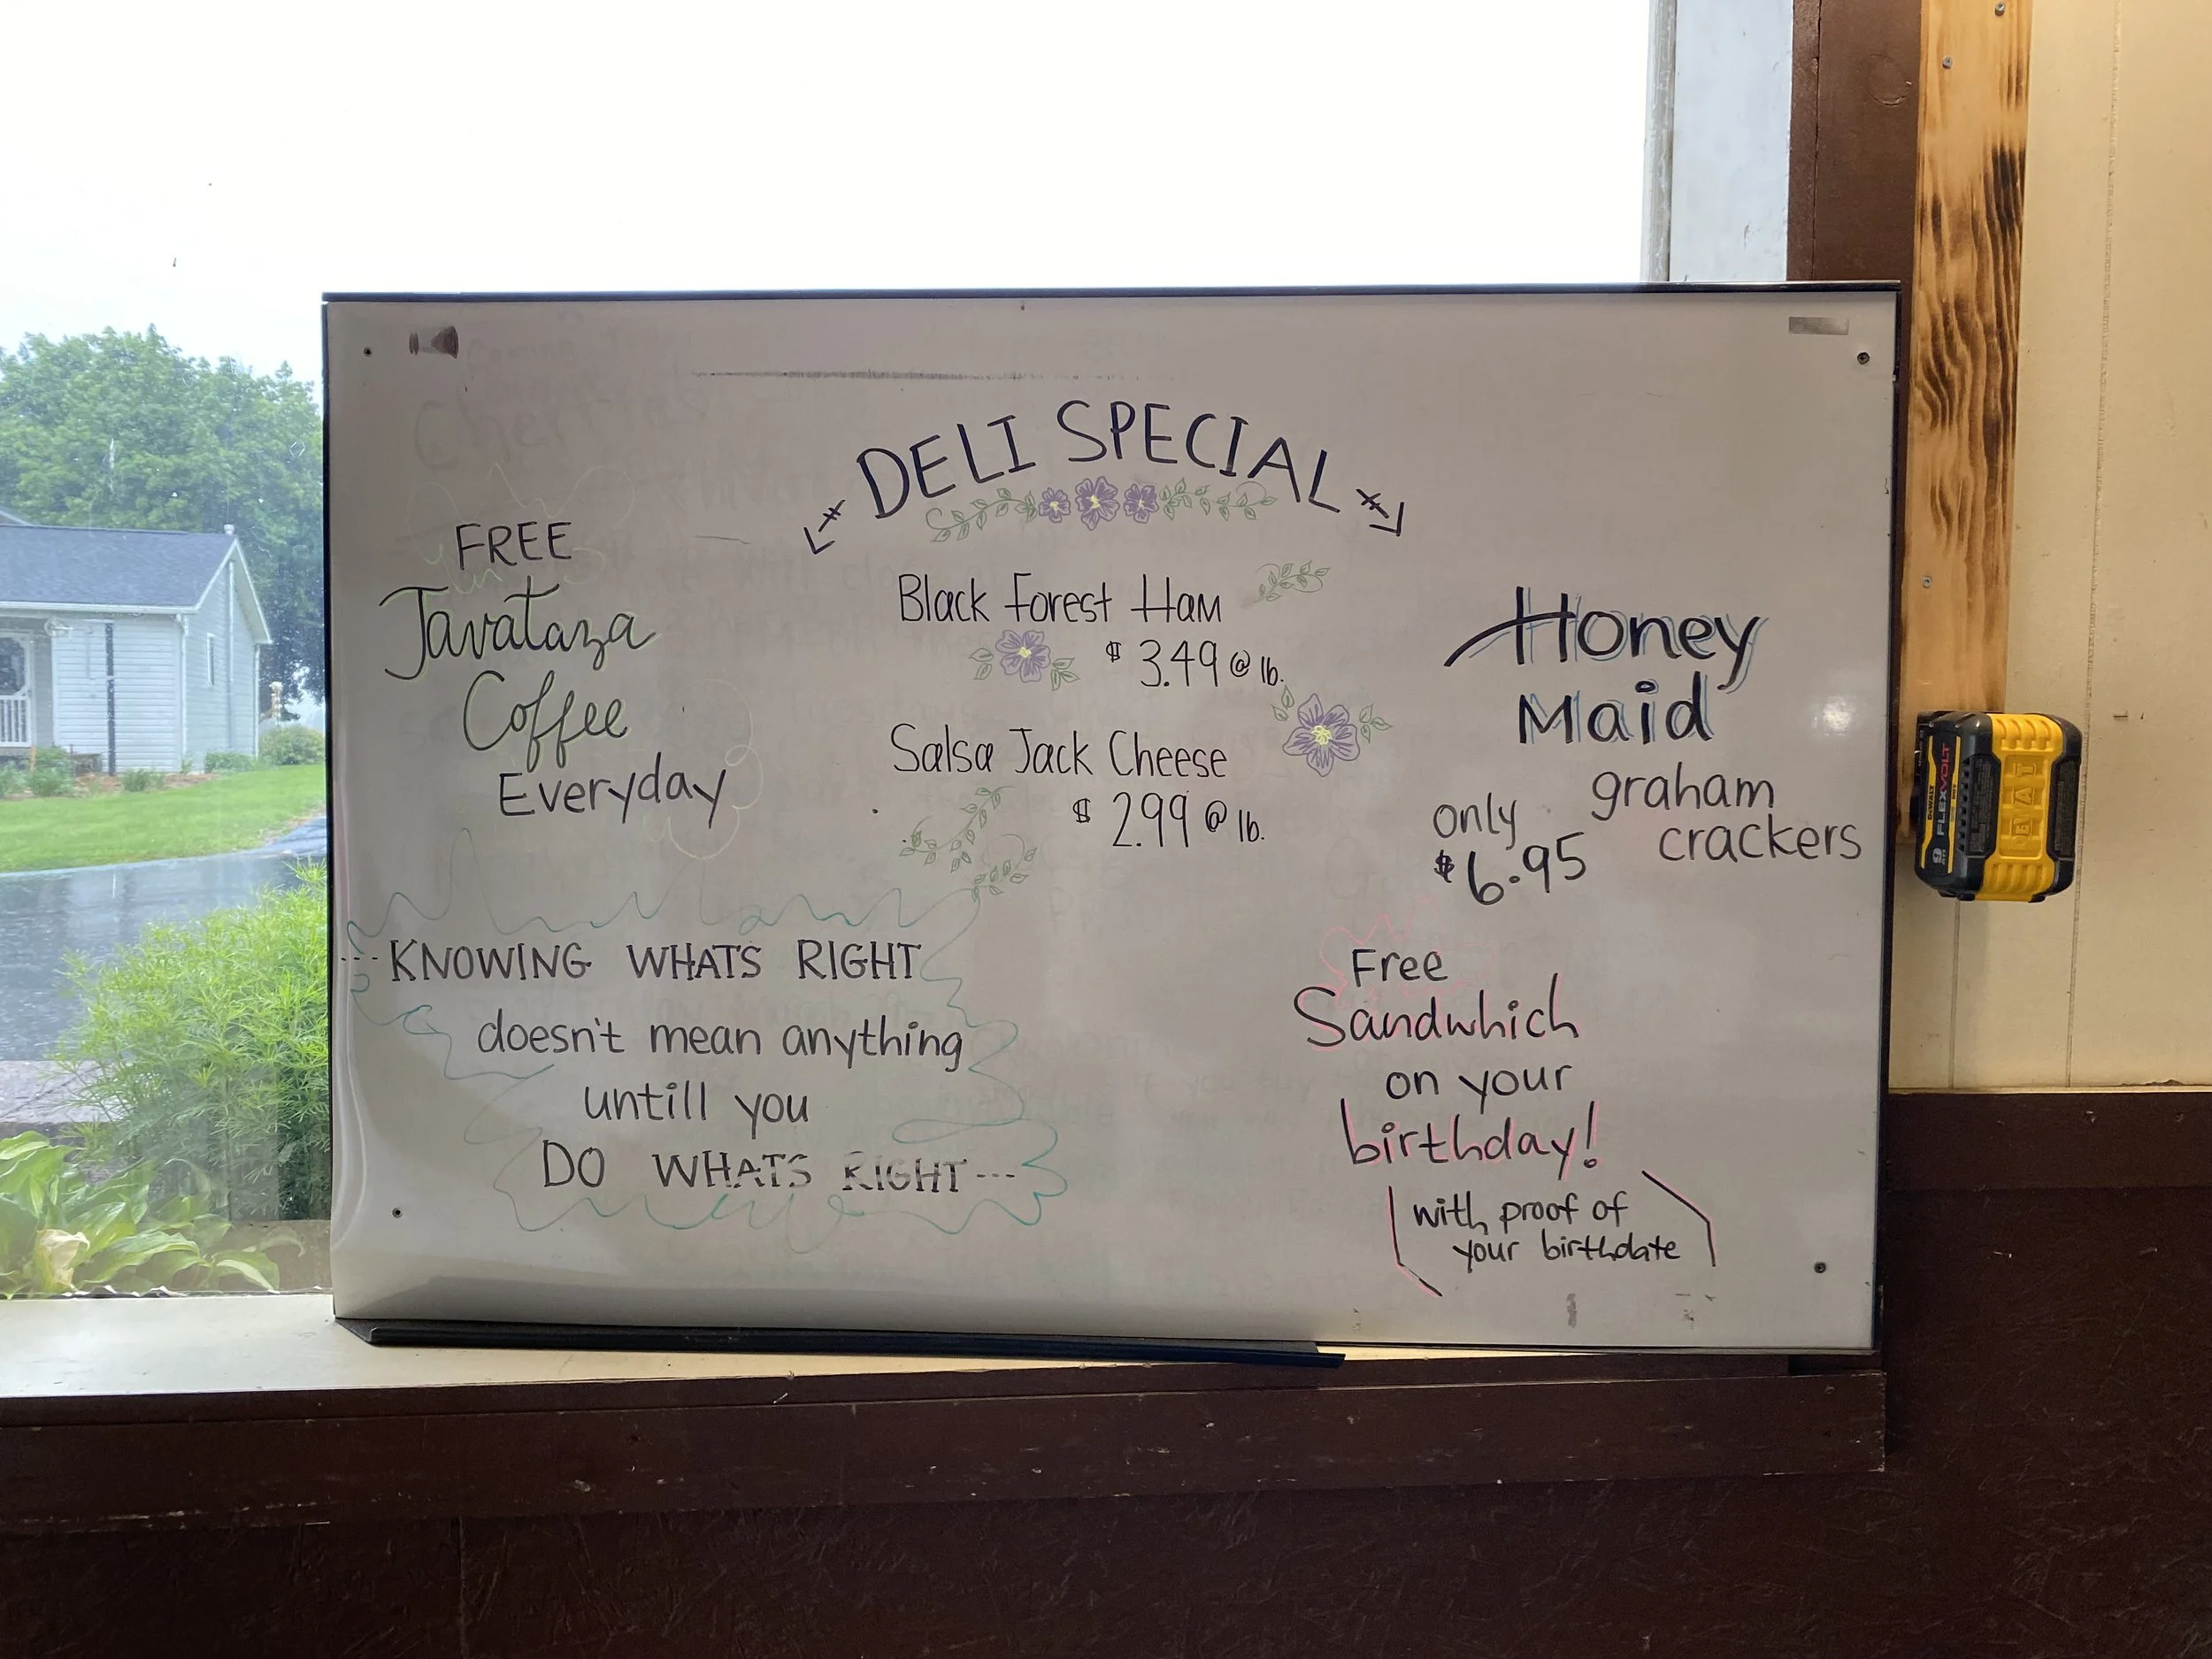 DELI SPECIAL
Black Forest Ham
$ 3.49 @ lb.
Salsa Jack Cheese
$ 2.99 @ lb.
FREE
Javataza
Coffee
Everyday
Honey
Maid
graham
crackers
only
$6.95
--- KNOWING WHATS RIGHT
doesn't mean anything
untill you
DO WHATS RIGHT ---
Free
Sandwhich
on your
birthday!
with proof of
your birthdate
DEWALT
FLEXVOLT
Cherries